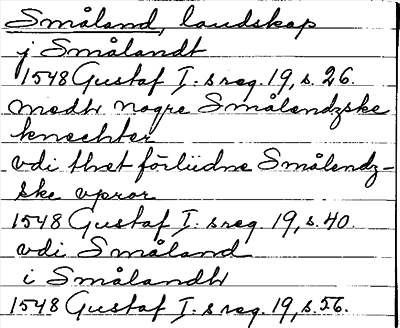 Småland, landskap
j Smålandt
1548 Gustaf I:s reg. 19, s. 26.
medh nogre Smålendzske
knechter
vdi thet förlidne Smålendz-
ske vpror
1548 Gustaf I:s reg. 19, s. 40.
vdi Småland
i Smålandh
1548 Gustaf I:s reg. 19, s. 56.